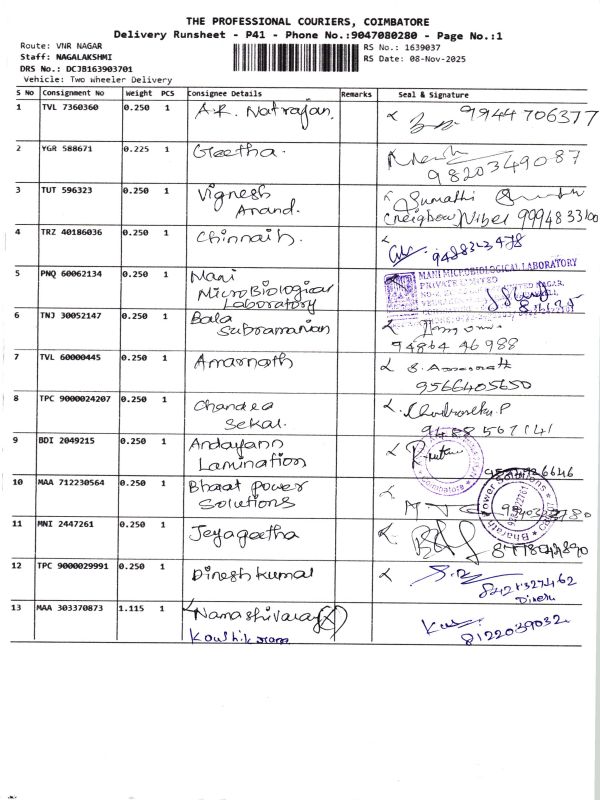 THE PROFESSIONAL COURIERS, COIMBATORE
Delivery Runsheet - P41 - Phone No.:9047080280 - Page No.:1
Route: VNR NAGAR
RS No.: 1639037
Staff: NAGALAKSHMI
RS Date: 08-Nov-2025
DRS No.: DCJB163903701
Vehicle: Two wheeler Delivery
S No Consignment No Weight PCS Consignee Details Remarks Seal & Signature
1 TVL 7360360 0.250 1 A.R. Natrajan. 9944706377
2 YGR 588671 0.225 1 Geetha. 9820349087
3 TUT 596323 0.250 1 Vignesh Sumathi
Anand. 9994833100
4 TRZ 40186036 0.250 1 Chinnaih. 9488323478
5 PNQ 60062134 0.250 1 Mani MANI MICROBIOLOGICAL LABORATORY
MicroBiological PRIVATE LIMITED
Laboratory
6 TNJ 30052147 0.250 1 Bala
Subramanian 94864 46988
7 TVL 60000445 0.250 1 Amarnath
9566405650
8 TPC 9000024207 0.250 1 Chandra
Sekar. 9488567141
9 BDI 2049215 0.250 1 Andayann
Lamination
10 MAA 712230564 0.250 1 Bharat power
Solutions
11 MNI 2447261 0.250 1 Jeyageetha
12 TPC 9000029991 0.250 1 Dinesh kumar
8421327462
Dinesh
13 MAA 303370873 1.115 1 Namashivaray
Koushikaram 8122039032